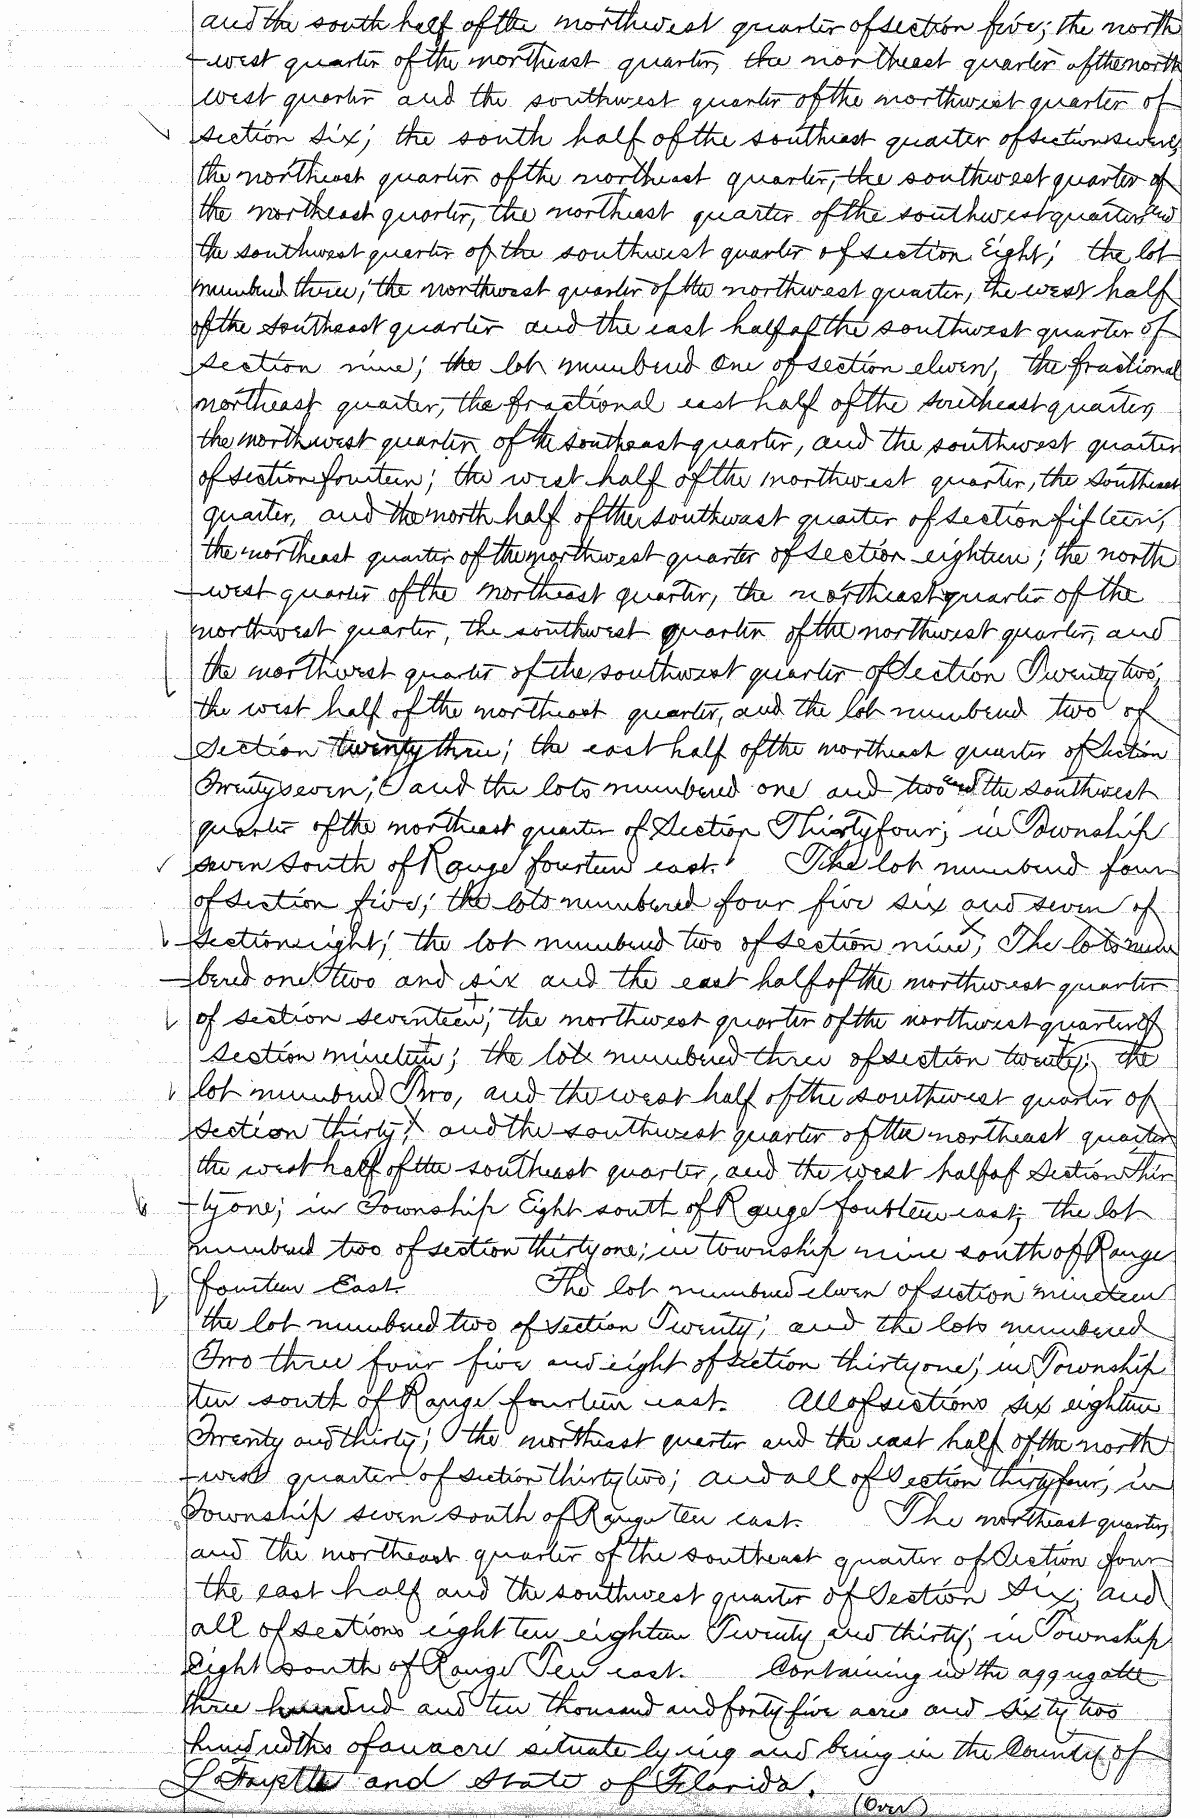 and the south half of the northwest quarter of section five; the north
-west quarter of the northeast quarter, the northeast quarter of the north
west quarter and the southwest quarter of the northwest quarter of
section six; the south half of the southeast quarter of section seven;
the northeast quarter of the northeast quarter, the southwest quarter of
the northeast quarter, the northeast quarter of the southwest quarter and
the southwest quarter of the southwest quarter of section Eight; the lot
numbered three; the northwest quarter of the northwest quarter, the west half
of the southeast quarter and the east half of the southwest quarter of
section nine; the lot numbered One of section eleven, the fractional
northeast quarter, the fractional east half of the southeast quarter,
the northwest quarter of the southeast quarter, and the southwest quarter
of section fourteen; the west half of the northwest quarter, the southeast
quarter, and the north half of the southwest quarter of section fifteen;
the northeast quarter of the northwest quarter of section eighteen; the north
-west quarter of the northeast quarter, the northeast quarter of the
northwest quarter, the southwest quarter of the northwest quarter, and
the northwest quarter of the southwest quarter of Section Twenty two;
the west half of the northeast quarter, and the lot numbered two of
Section twenty three; the east half of the northeast quarter of Section
Twenty seven; and the lots numbered one and two and the southwest
quarter of the northeast quarter of Section Thirty four; in Township
seven south of Range fourteen east. The lot numbered four
of section five; the lots numbered four five six and seven of
section eight; the lot numbered two of section nine; The lots num
bered one two and six and the east half of the northwest quarter
of section seventeen; the northwest quarter of the northwest quarter of
section nineteen; the lots numbered three of section twenty; the
lot numbered Two, and the west half of the southwest quarter of
section thirty; and the southwest quarter of the northeast quarter
the west half of the southeast quarter, and the west half of Section Thir
-ty one; in Township Eight south of Range fourteen east; the lot
numbered two of section thirty one; in township nine south of Range
fourteen East. The lot numbered eleven of section nineteen
the lot numbered two of section Twenty; and the lots numbered
Two three four five and eight of section thirty one; in Township
ten south of Range fourteen east. All of sections six eighteen
Twenty and thirty; the northeast quarter and the east half of the north
-west quarter of section thirty two; and all of Section thirty four; in
Township seven south of Range ten east. The northeast quarter,
and the northeast quarter of the southeast quarter of Section four
the east half and the southwest quarter of Section Six; and
all of sections eight ten eighteen Twenty and thirty; in Township
Eight South of Range Ten east. Containing in the aggregate
three hundred and ten thousand and forty five acres and sixty two
hundredths of an acre situate lying and being in the County of
LaFayette and State of Florida.
(Over)